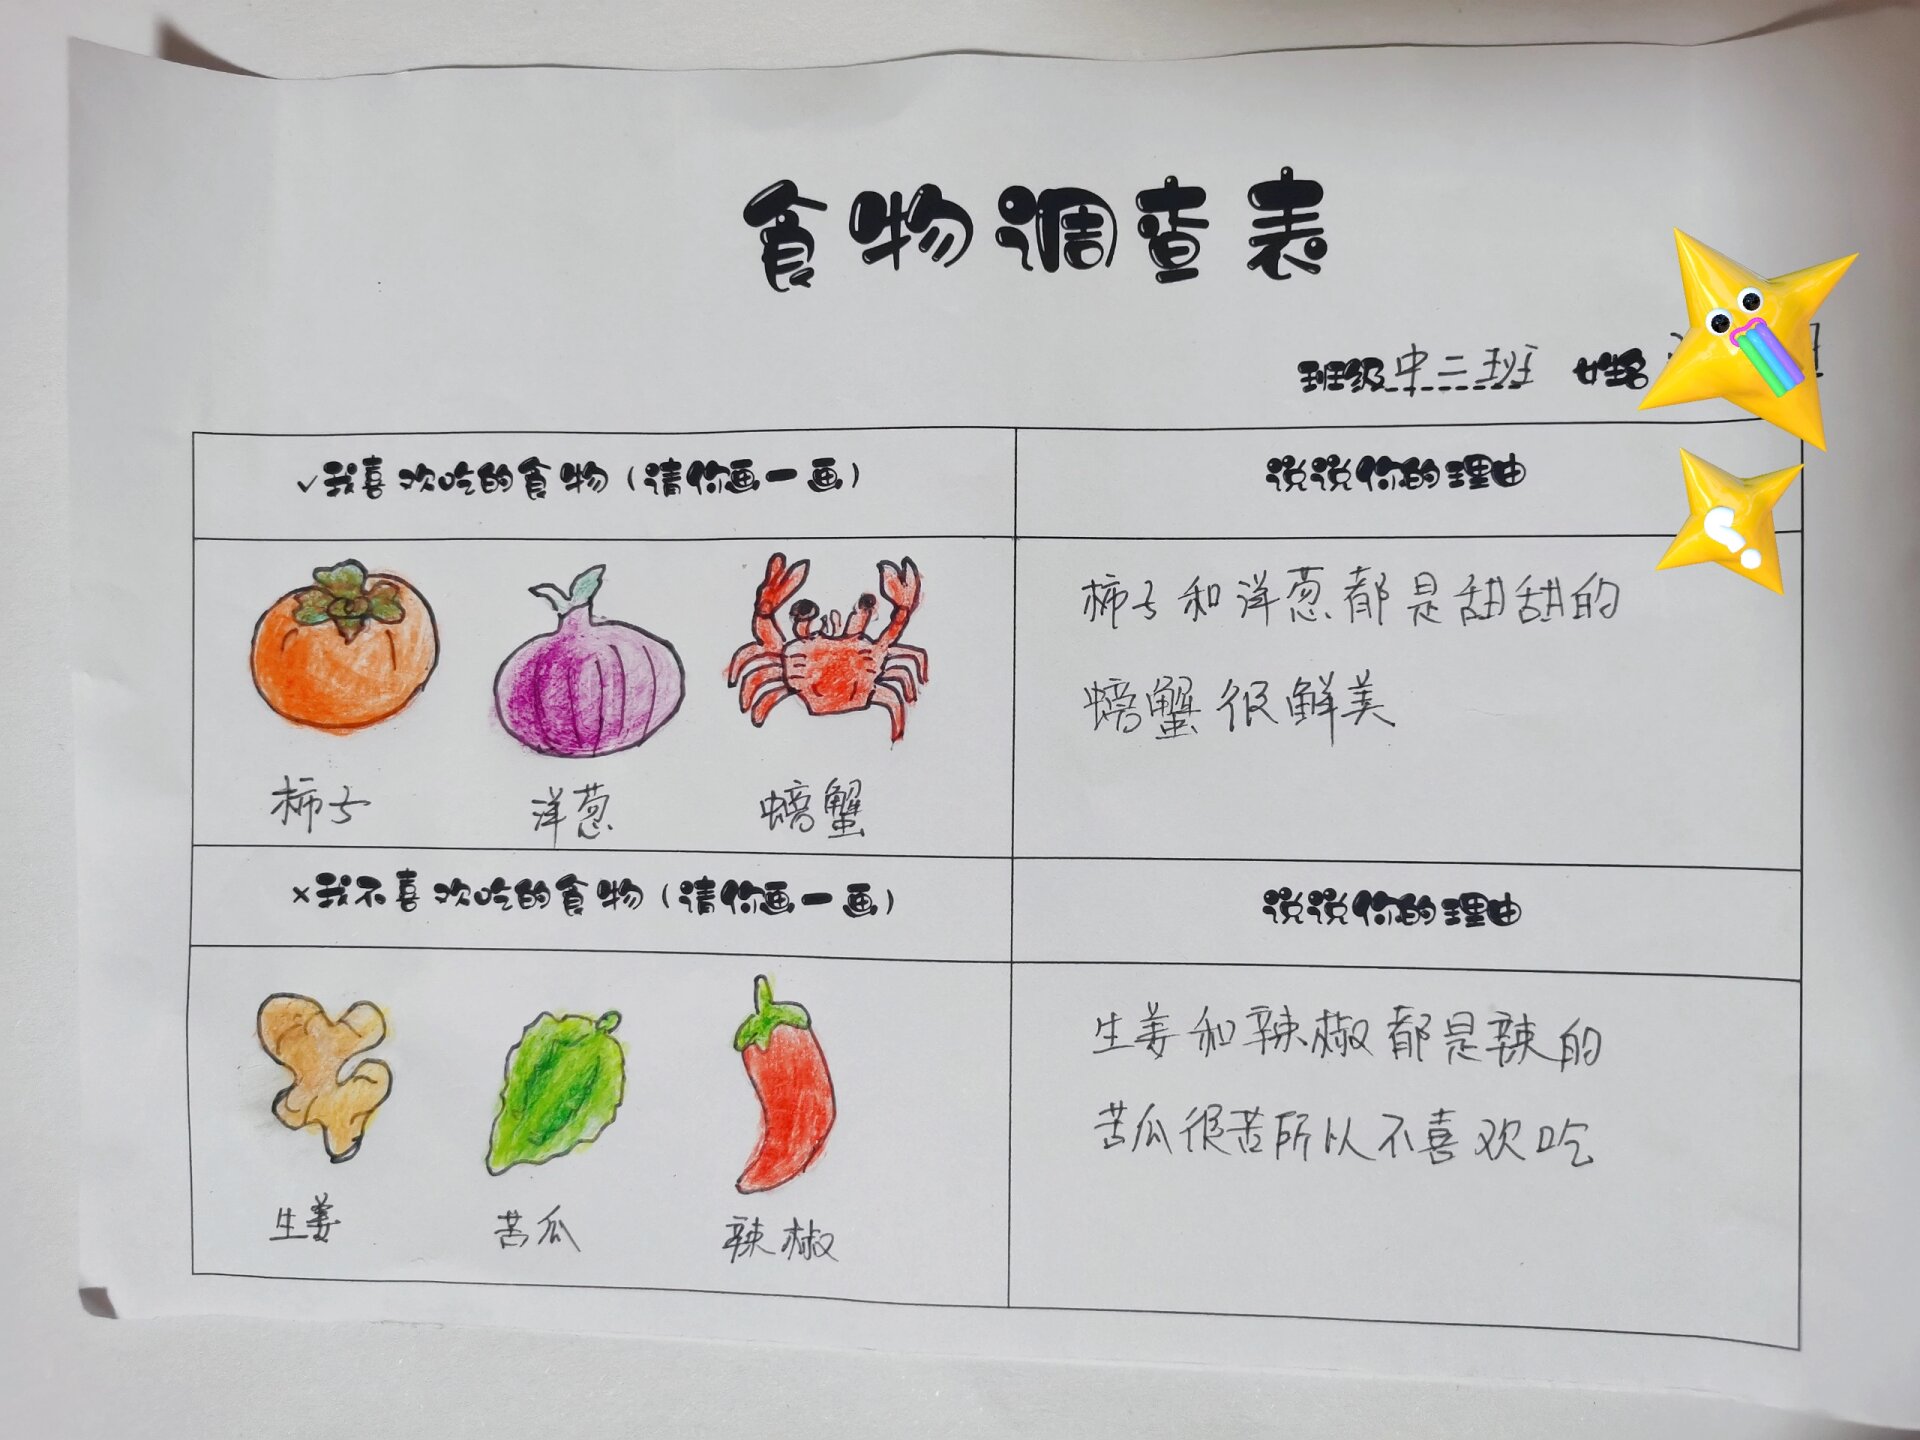 食物调查表
班级中二班 姓名
✓我喜欢吃的食物(请你画一画) 说说你的理由
柿子和洋葱都是甜甜的
螃蟹很鲜美
柿子 洋葱 螃蟹
×我不喜欢吃的食物(请你画一画) 说说你的理由
生姜和辣椒都是辣的
苦瓜很苦所以不喜欢吃
生姜 苦瓜 辣椒